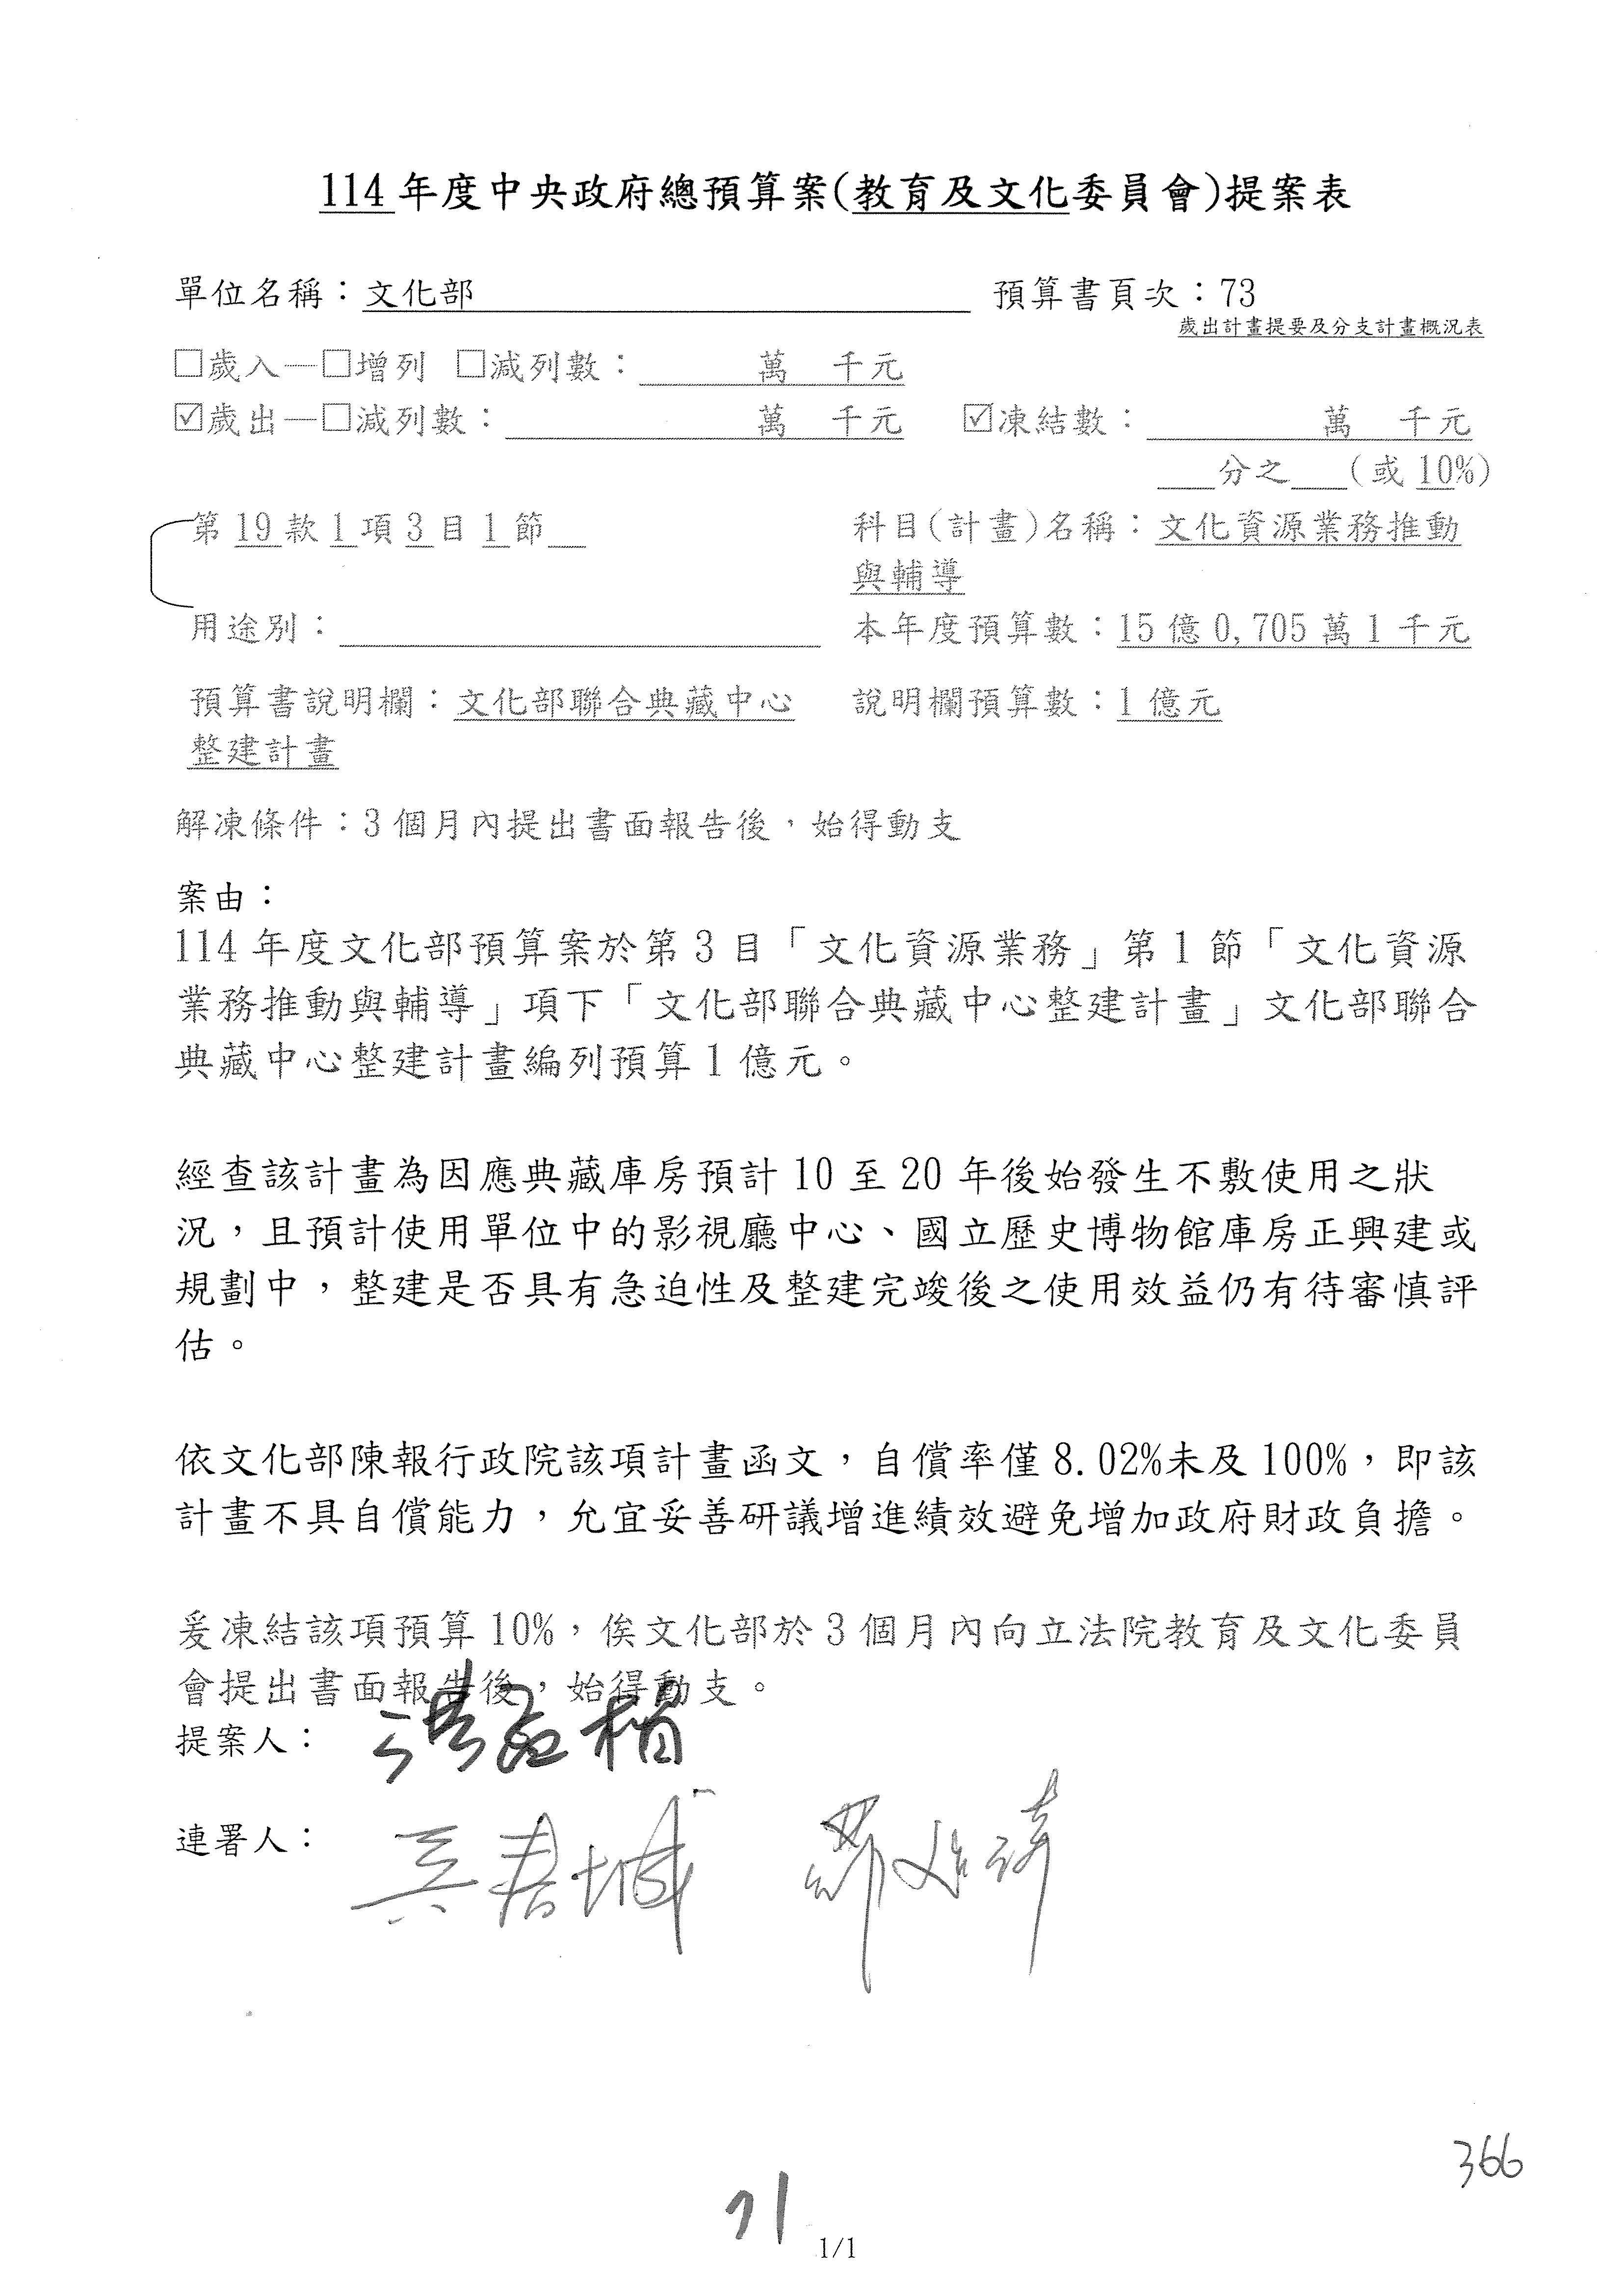 114年度中央政府總預算案(教育及文化委員會)提案表
單位名稱：文化部 預算書頁次：73
歲出計畫提要及分支計畫概況表
□歲入—□增列 □減列數：萬 千元
☑歲出—□減列數：萬 千元 ☑凍結數：萬 千元
___分之___(或10%)
第19款1項3目1節 科目(計畫)名稱：文化資源業務推動
與輔導
用途別： 本年度預算數：15億0,705萬1千元
預算書說明欄：文化部聯合典藏中心 說明欄預算數：1億元
整建計畫
解凍條件：3個月內提出書面報告後，始得動支
案由：
114年度文化部預算案於第3目「文化資源業務」第1節「文化資源
業務推動與輔導」項下「文化部聯合典藏中心整建計畫」文化部聯合
典藏中心整建計畫編列預算1億元。
經查該計畫為因應典藏庫房預計10至20年後始發生不敷使用之狀
況，且預計使用單位中的影視廳中心、國立歷史博物館庫房正興建或
規劃中，整建是否具有急迫性及整建完竣後之使用效益仍有待審慎評
估。
依文化部陳報行政院該項計畫函文，自償率僅8.02%未及100%，即該
計畫不具自償能力，允宜妥善研議增進績效避免增加政府財政負擔。
爰凍結該項預算10%，俟文化部於3個月內向立法院教育及文化委員
會提出書面報告後，始得動支。
提案人：洪孟楷
連署人：
366
71
1/1